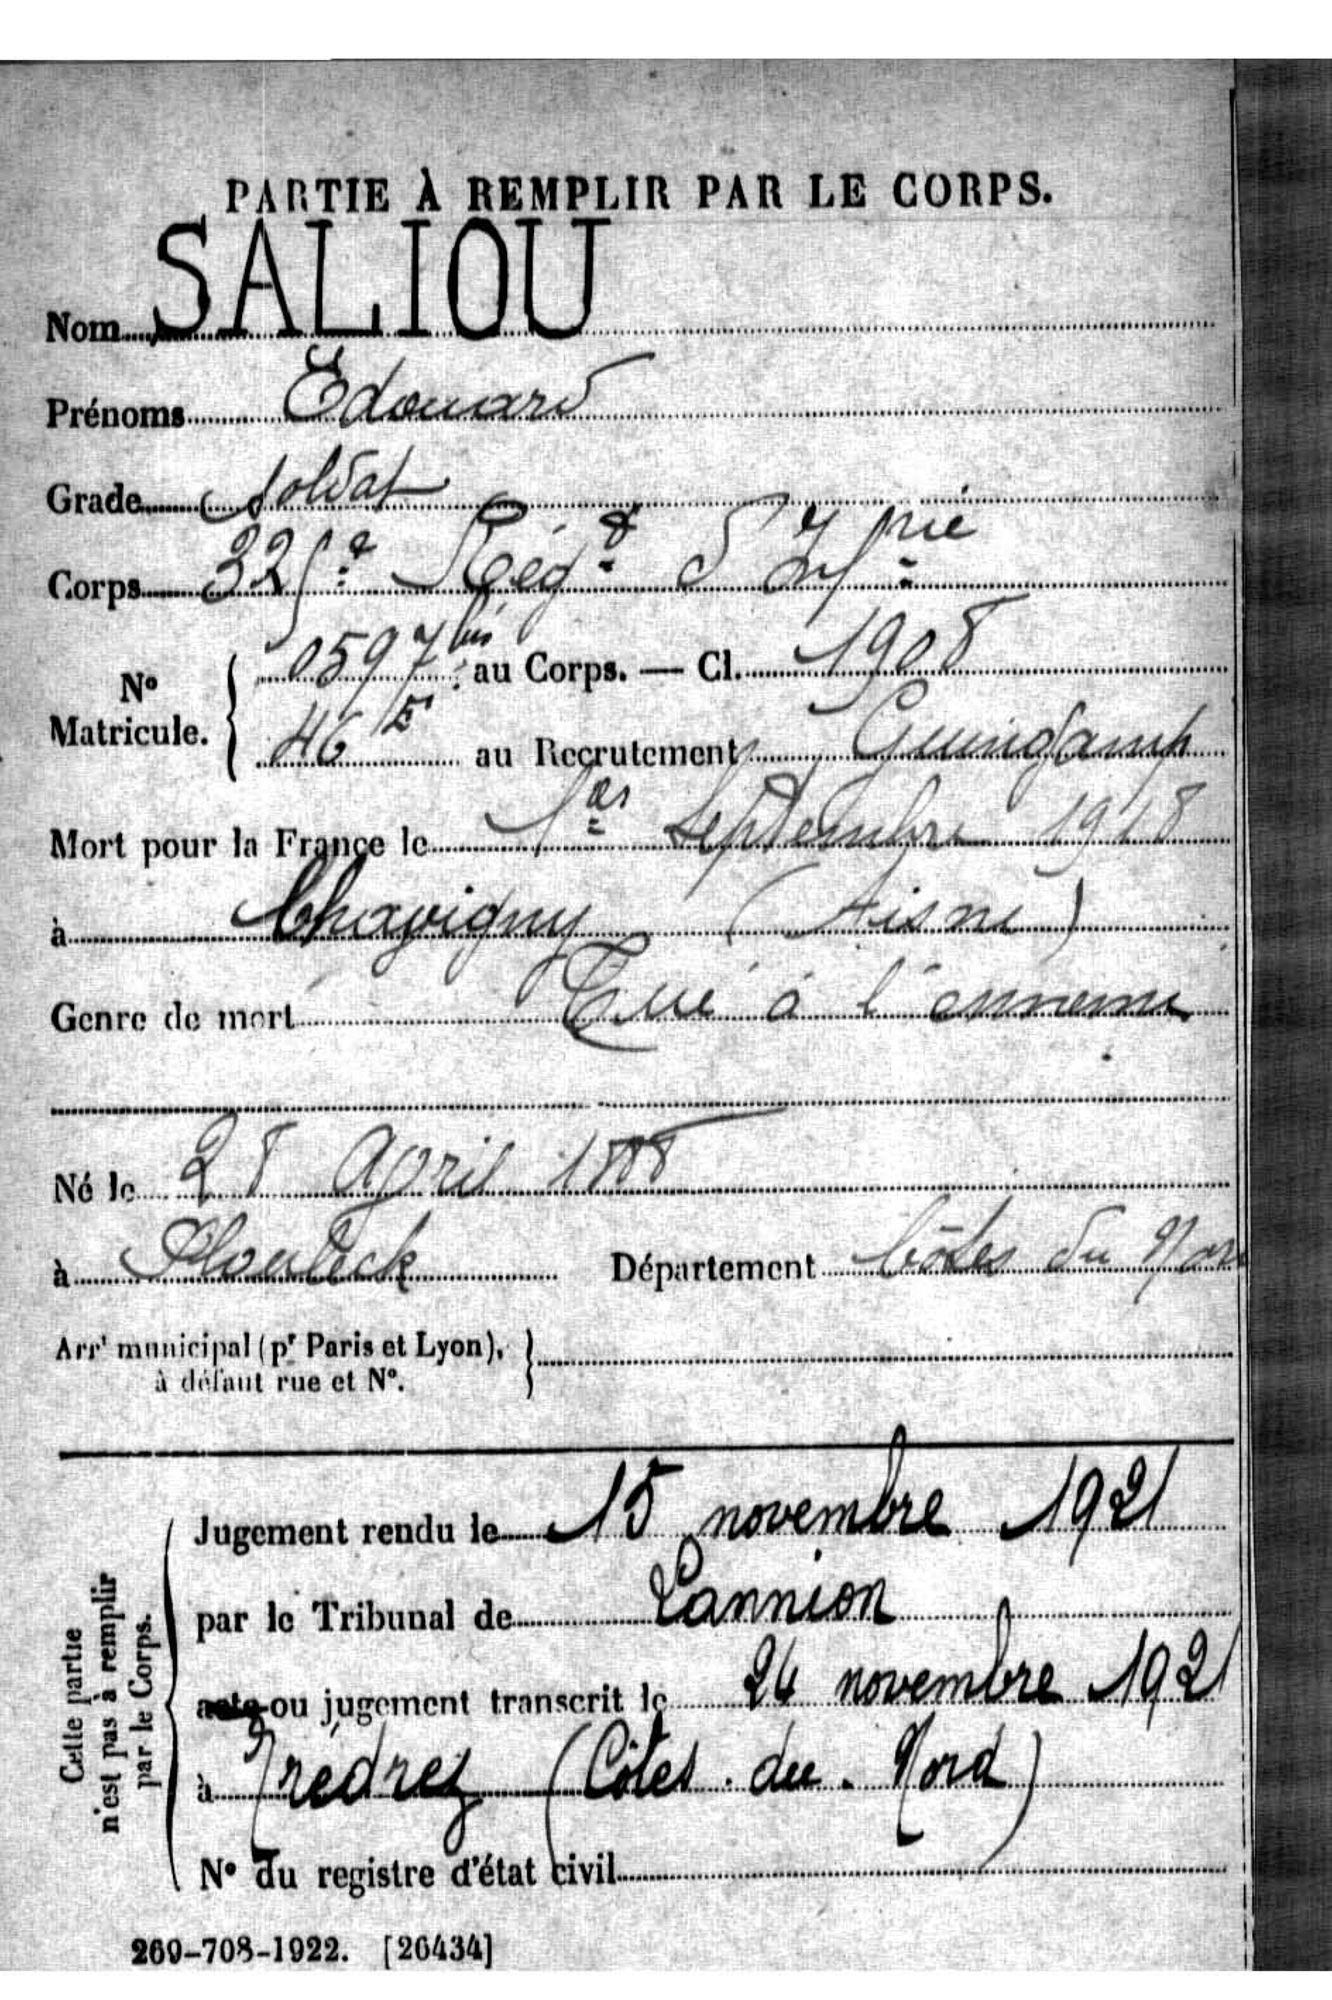 PARTIE À REMPLIR PAR LE CORPS.
Nom SALIOU
Prénoms Edouard
Grade Soldat
Corps 325e Régt d'Infrie
No Matricule. { 0597 bis au Corps. — Cl. 1908
46 au Recrutement Guingamp
Mort pour la France le 1er Septembre 1918
à Chavigny (Aisne)
Genre de mort Tué à l'ennemi
Né le 28 Avril 1888
à Département Côtes du Nord
Arrt municipal (pr Paris et Lyon), }
à défaut rue et No.
Cette partie
n'est pas à remplir
par le Corps.
Jugement rendu le 15 novembre 1921
par le Tribunal de Lannion
acte ou jugement transcrit le 24 novembre 1921
à Trédrez (Côtes. du. Nord)
No du registre d'état civil
269-708-1922. [26434]